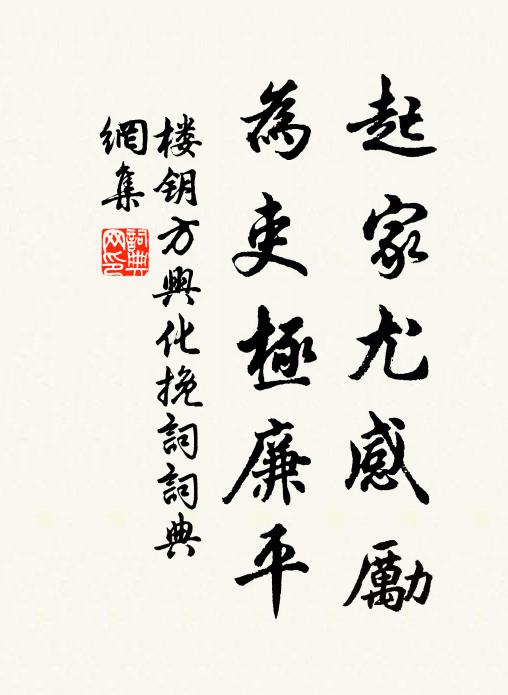 起家尤感勵
為吏極廉平
楼钥方興化挽詞詞典
網集
詞典網印